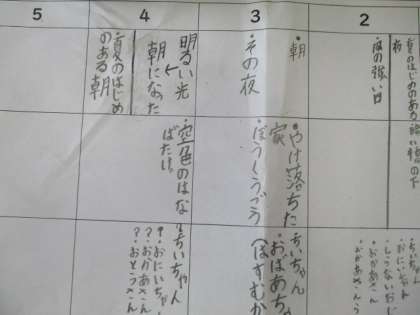 5
4
3
2
夏のはじめのある
夜
・夜の強い日
・朝
・その夜
明るい光
↓
朝になった
夏のはじめ
のある朝
・やけ落ちた
家
・ぼうくうごう
・空色のはな
ばたけ。
ちいちゃん
おにいちゃん
・おかあさん
・ちいちゃん
・おばあちゃ
（はすむか
・ちいちゃん
？・おにいちゃん
？・おかあさん
？・おとうさん